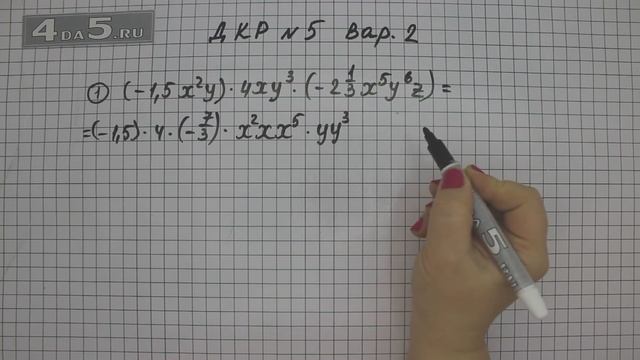 4DA5.RU
ДКР №5 Вар. 2
① (-1,5x²y)·4xy³·(-2⅓x⁵y⁶z)=
=(-1,5)·4·(-7/3)·x²xx⁵·yy³
5